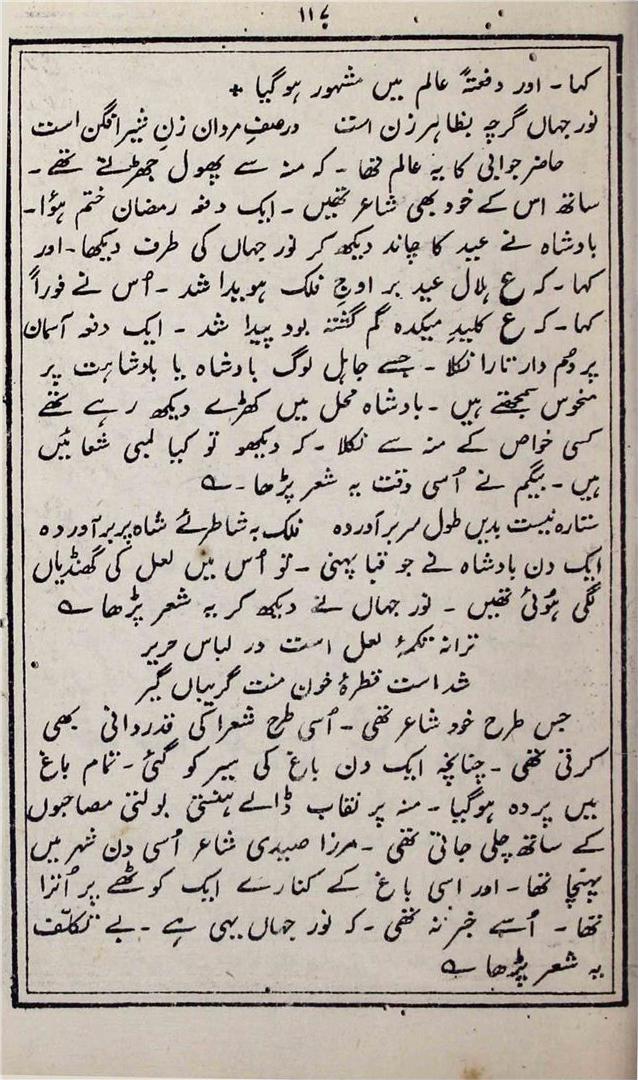 ۱۱۷
کہا - اور دفعتہً عالم میں مشہور ہوگیا +
نور جہاں گرچہ بظاہر زن است درصفِ مردان زنِ شیر افگن است
حاضر جوابی کا یہ عالم تھا - کہ منہ سے پھول جھڑتے تھے -
ساتھ اس کے خود بھی شاعر تھیں - ایک دفعہ رمضان ختم ہؤا -
بادشاہ نے عید کا چاند دیکھ کر نور جہاں کی طرف دیکھا - اور
کہا - کہ ع ہلال عید بر اوجِ فلک ہویدا شد - اُس نے فوراً
کہا - کہ ع کلیدِ میکدہ گم گشتہ بود پیدا شد - ایک دفعہ آسمان
پر دُم دار تارا نکلا - جسے جاہل لوگ بادشاہ یا بادشاہت پر
منحوس سمجھتے ہیں - بادشاہ محل میں کھڑے دیکھ رہے تھے
کسی خواص کے منہ سے نکلا - کہ دیکھو تو کیا لمبی شعائیں
ہیں - بیگم نے اُسی وقت یہ شعر پڑھا - ے
ستارہ نیست بدیں طول سر برآوردہ فلک بہ شاطرئے شاہ پر برآوردہ
ایک دن بادشاہ نے جو قبا پہنی - تو اُس میں لعل کی گھنڈیاں
لگی ہوئی تھیں - نور جہاں نے دیکھ کر یہ شعر پڑھا ے
ترا نہ تکمۂ لعل است در لباس حریر
شد است قطرۂ خون منت گریباں گیر
جس طرح خود شاعر تھی - اُسی طرح شعرا کی قدردانی بھی
کرتی تھی - چنانچہ ایک دن باغ کی سیر کو گئی - تمام باغ
میں پردہ ہوگیا - منہ پر نقاب ڈالے ہنستی بولتی مصاحبوں
کے ساتھ چلی جاتی تھی - مرزا صیدی شاعر اُسی دن شہر میں
پہنچا تھا - اور اسی باغ کے کنارے ایک کوٹھے پر اُترا
تھا - اُسے خبر نہ تھی - کہ نور جہاں یہی ہے - بے تکلّف
یہ شعر پڑھا ے